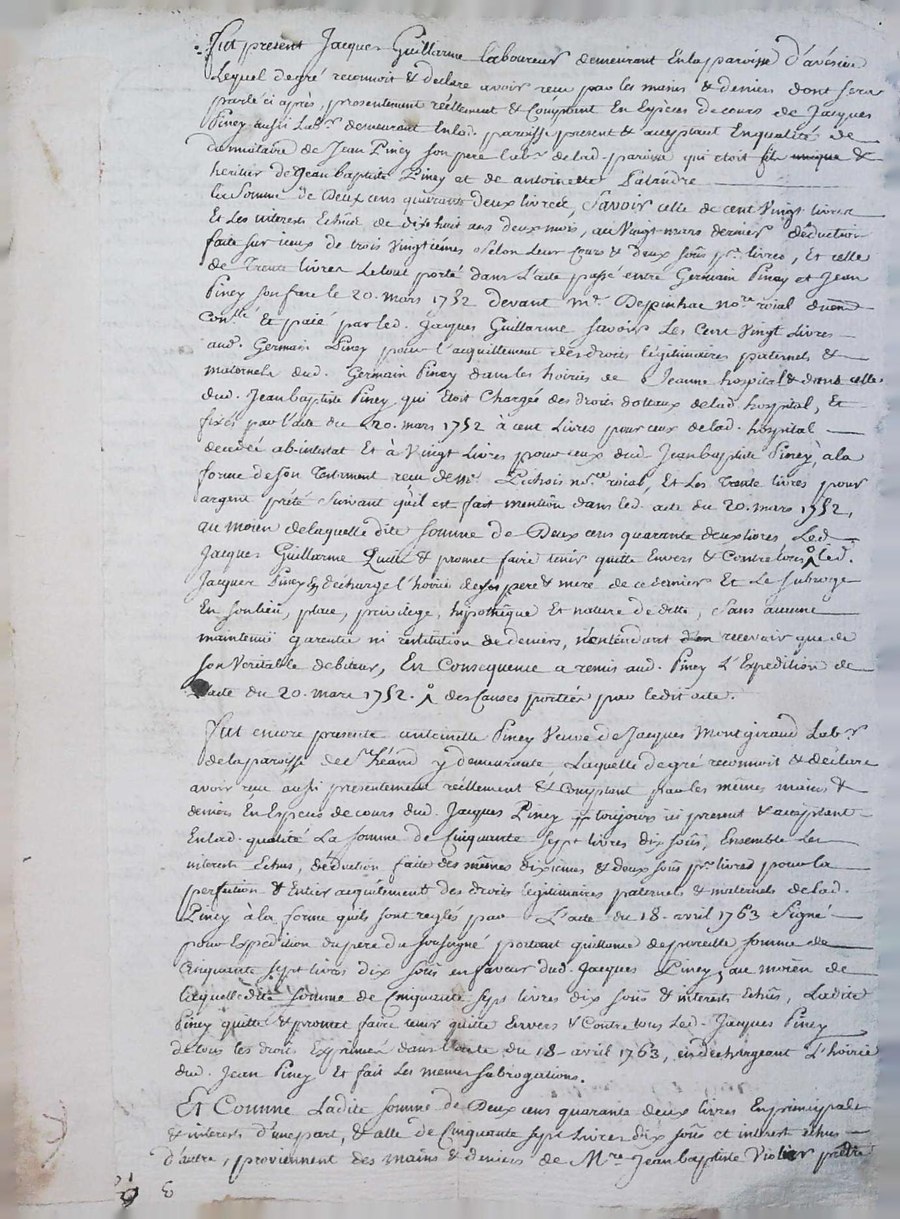 Fut present Jacques Guillarme laboureur demeurant En la paroisse d'avésieu
Lequel de gré reconnoit & declare avoir recu par les mains & deniers dont sera
parlé ci après, presentement réellement & Comptant En Espèces de cours de Jacques
Piney aussi Labr demeurant En lad. paroisse present & acceptant En qualités de
donnataire de Jean Piney Son pere labr de lad. paroisse qui étoit fils unique &
heritier de Jean baptiste Piney et de antoinette Palandre
la Somme de Deux cens quarante deux livres, Savoir celle de cent Vingt livres
Et Les interests Echus de dixhuit ans deux mois, au Vingt mars dernier déduction
faite sur iceux de trois Vingtiémes selon Leur Cours & deux sous pr. livres, Et celle
de Trente livres Le tout porté dans L'acte passé entre Germain Piney et Jean
Piney son frere le 20. mars 1752 devant Mr. Depinhac nore roial
Conllé Et paié par led. Jacques Guillarme Savoir Les Cent Vingt Livres
aud. Germain Piney pour l'acquittement des droits légitimaires paternels &
maternels dud. Germain Piney dans les hoiries de Jeanne hospital & dans celle
dud. Jean baptiste Piney qui Etoit Chargée des droits dottaux de lad. hospital, Et
fixés par l'acte du 20. mars 1752 à cent Livres pour ceux de lad. hospital
decedée abintestat Et à Vingt Livres pour ceux dud. Jean baptiste Piney, à la
forme de son Testament recu de Mr. Pichois nre roial, Et Les Trente livres pour
argent prété Suivant qu'il est fait mention dans led. acte du 20. mars 1752,
au moien de laquelle dite somme de Deux cens quarante deux livres Led
Jacques Guillarme Quitte & promet faire tenir quitte Envers & Contre tous led.
Jacques Piney & decharge l'hoirie de son pere & mere de ce dernier Et Le subroge
En son lieu, place, privilege, hipothèque Et nature de dette, Sans aucune
maintenüe garentie ni restitution de deniers, n'entendant recevoir que de
son Veritable debiteur, En Consequence a remis aud. Piney L'Expedition de
L'acte du 20. mars 1752. des Causes portées par ledit acte.
Fut encore presente antoinette Piney Veuve de Jacques Montgiraud Labr
de la paroisse de St Héand y demeurante Laquelle de gré reconnoit & déclare
avoir recu aussi presentement réellement & Comptant par les mêmes mains &
deniers En Especes de cours dud. Jacques Piney toujours ici present & acceptant
En lad. qualité La somme de Cinquante sept livres dix sous, Ensemble Les
interests Echus, déduction faite des mêmes dixiemes & deux sous pr. livres pour la
perfection & Entier acquitement des droits légitimaires paternels & maternels de lad.
Piney à la forme qu'ils sont reglés par L'acte du 18. avril 1763 Signé
pour Expedition du pere du soussigné portant quittance de pareille somme de
Cinquante sept livres dix sous en faveur dud. Jacques Piney, au moïen de
laquelle dite somme de Cinquante sept livres dix sous & interests Echus, Ladite
Piney quitte & promet faire tenir quitte Envers & Contre tous Led. Jacques Piney
de tous les droits Exprimés dans l'acte du 18. avril 1763, en dechargeant L'hoirie
dud. Jean Piney Et fait Les memes subrogations.
Et Comme Ladite somme de Deux cens quarante deux livres En principal
& interests d'une part, & celle de Cinquante sept Livres dix sous et interest echus
d'autre, proviennent des mains & deniers de Mre Jean baptiste Violier prêtre